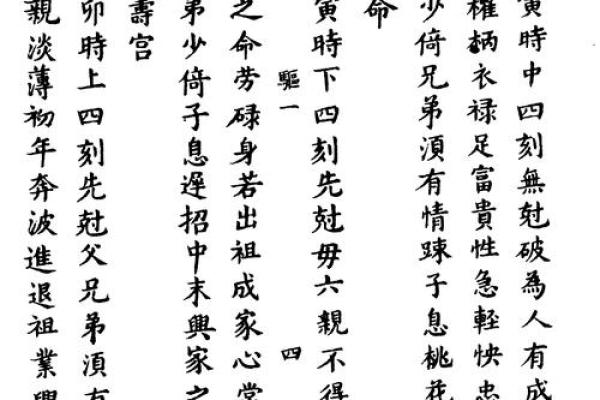 寅時中四刻無尅破為人有成
權柄衣禄足富貴性急輕怏忠
少倚兄弟湏有情踈子息桃花
命
寅時下四刻先尅毋六親不得
驅一
四
之命劳碌身若出祖成家心常
弟少倚子息遅招中末興家之
壽宫
卯時上四刻先尅父兄弟湏有
親淡薄初年奔波進退祖業興